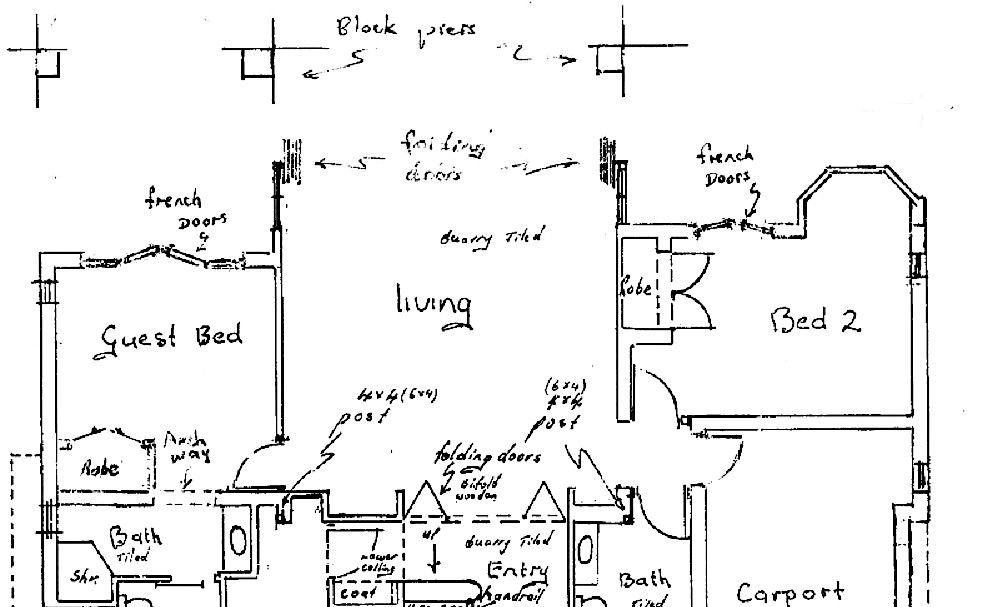 Block piers
folding
doors
french
Doors
french
Doors
Quarry Tiled
Robe
living
Bed 2
Guest Bed
4x4 (6x4)
post
(6x4)
4x4
post
Arch
way
Robe
folding doors
Bifold
wooden
Bath
Tiled
up
Quarry Tiled
Shr.
lower
ceiling
Entry
coat
handrail
Bath
Tiled
Carport